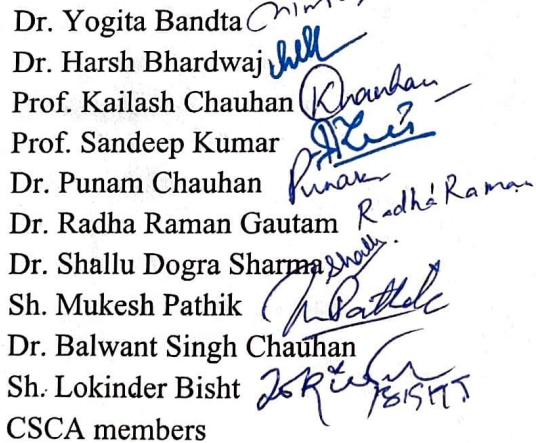 Dr. Yogita Bandta
Dr. Harsh Bhardwaj
Prof. Kailash Chauhan Khauhan
Prof. Sandeep Kumar
Dr. Punam Chauhan Punam
Dr. Radha Raman Gautam Radha Raman
Dr. Shallu Dogra Sharma Shallu
Sh. Mukesh Pathik M Pathik
Dr. Balwant Singh Chauhan
Sh. Lokinder Bisht BISHT
CSCA members